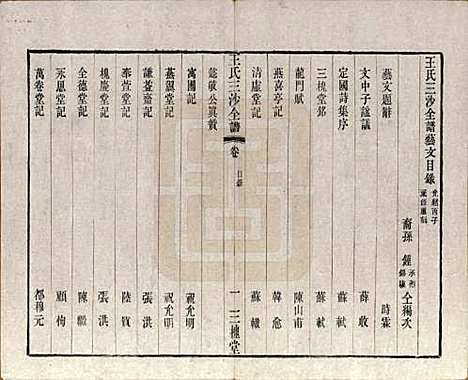 王氏三沙全譜藝文目錄
裔孫 鍾 仝編次
藝文題辭 時霖
文中子謚議 薛收
定國詩集序 蘇軾
三槐堂銘 蘇軾
龍門賦 陳山甫
燕喜亭記 韓愈
清虛堂記 蘇轍
懿敬公眞贊
王氏三沙全譜 卷 目錄 一 三槐堂
寓圃記 祝允明
燕翼堂記 祝允明
謙益齋記 張洪
奉萱堂記 陸質
槐慶堂記 張洪
全德堂記 陳繼
永思堂記 顧栒
萬卷堂記 都穆元